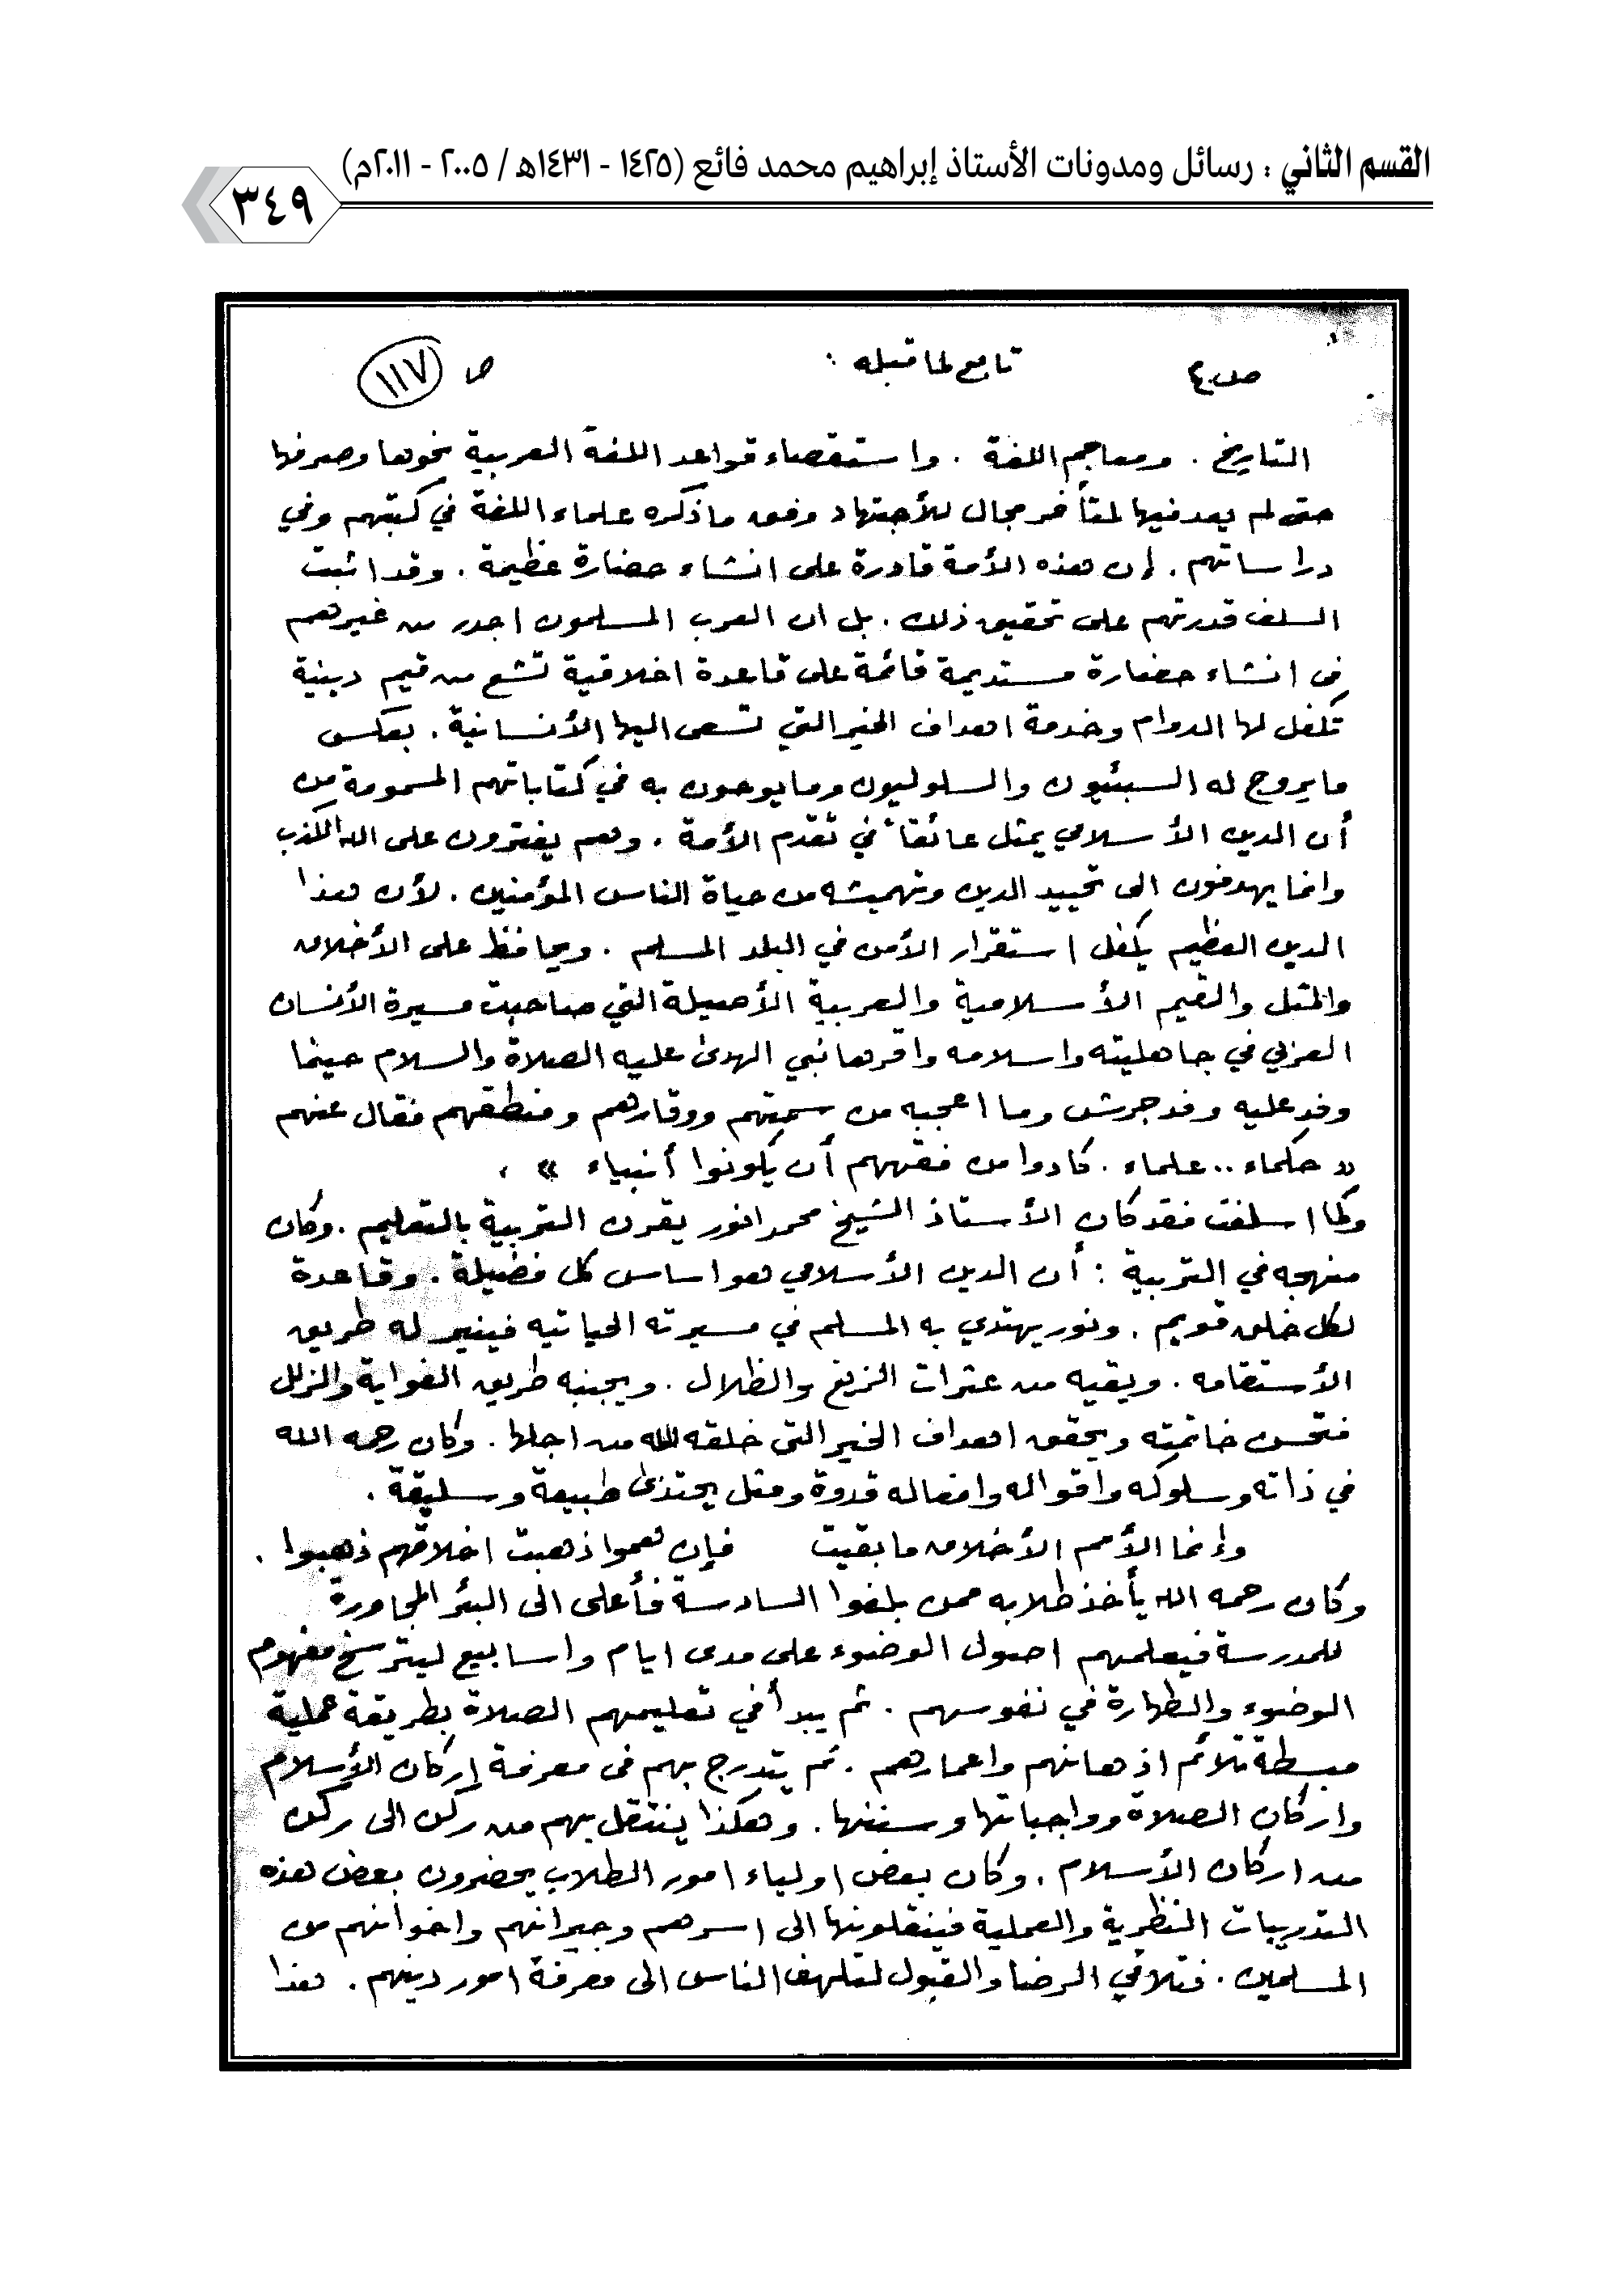 القسم الثاني : رسائل ومدونات الأستاذ إبراهيم محمد فائع (١٤٢٥ - ١٤٣١هـ / ٢٠٠٥ - ٢٠١١م)
٣٤٩
ص٤٠ تابع لما قبله : ص ١١٧
التاريخ . ومعاجم اللغة . واستقصاء قواعد اللغة العربية نحوها وصرفها
حتى لم يعد فيها لمتأخر مجال للأجتهاد وفق ما ذكره علماء اللغة في كتبهم وفي
دراساتهم . إن هذه الأمة قادرة على انشاء حضارة عظيمة . وقد اثبت
السلف قدرتهم على تحقيق ذلك . بل ان العرب المسلمون اجدر من غيرهم
في انشاء حضارة مستديمة قائمة على قاعدة اخلاقية تشع من قيم دينية
تكفل لها الدوام وخدمة اهداف الخير التي تسعى اليها الأنسانية . بعكس
ما يروج له السبئيون والسلوليون وما يوحون به في كتاباتهم المسمومة من
أن الدين الأسلامي يمثل عائقاً في تقدم الأمة . وهم يفترون على الله الكذب
وانما يهدفون الى تحييد الدين وتهميشه من حياة الناس المؤمنين . لأن هذا
الدين العظيم يكفل استقرار الأمن في البلد المسلم . ويحافظ على الأخلاق
والمثل والقيم الأسلامية والعربية الأصيلة التي صاحبت مسيرة الأنسان
العربي في جاهليته واسلامه واقرها نبي الهدى عليه الصلاة والسلام حينما
وفد عليه وفد جرش وما اعجبه من سمتهم ووقارهم ومنطقهم فقال عنهم
« حكماء .. علماء . كادوا من فقههم أن يكونوا أنبياء » .
وكما اسلفت فقد كان الأستاذ الشيخ محمد انور يقرن التربية بالتعليم . وكان
منهجه في التربية : أن الدين الأسلامي هو اساس كل فضيلة . وقاعدة
لكل خلق قويم . ونور يهتدي به المسلم في مسيرته الحياتيه فينير له طريق
الأستقامه . ويقيه من عثرات الزيغ والظلال . ويجنبه طريق الغواية والزلل
فتحسن خاتمته ويحقق اهداف الخير التي خلقه الله من اجلها . وكان رحمه الله
في ذاته وسلوكه واقواله وافعاله قدوة ومثل يحتذى طبيعة وسليقة .
وإنما الأمم الأخلاق ما بقيت فإن همو ذهبت اخلاقهم ذهبوا .
وكان رحمه الله يأخذ طلابه ممن بلغوا السادسة فأعلى الى البئر المجاورة
للمدرسة فيعلمهم اصول الوضوء على مدى ايام واسابيع ليترسخ مفهوم
الوضوء والطهارة في نفوسهم . ثم يبدأ في تعليمهم الصلاة بطريقة عملية
مبسطة تلائم اذهانهم واعمارهم . ثم يتدرج بهم في معرفة إركان الأسلام
واركان الصلاة وواجباتها وسننها . وهكذا ينتقل بهم من ركن الى ركن
من اركان الأسلام . وكان بعض اولياء امور الطلاب يحضرون بعض هذه
التدريبات النظرية والعملية فينقلونها الى اسرهم وجيرانهم واخوانهم من
المسلمين . فتلاقي الرضا والقبول لتلهف الناس الى معرفة امور دينهم . هذا